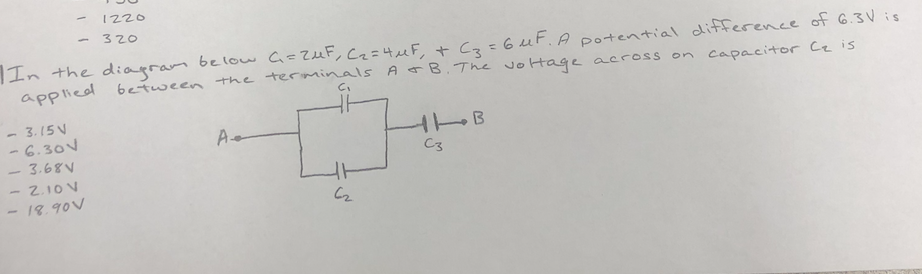 - 1220
- 320
In the diagram below C₁=2μF, C₂=4μF, + C₃=6μF. A potential difference of 6.3V is
applied between the terminals A + B. The voltage across on capacitor C₂ is
- 3.15V
- 6.30V
- 3.68V
- 2.10V
- 18.90V
C₁
A
B
C₃
C₂